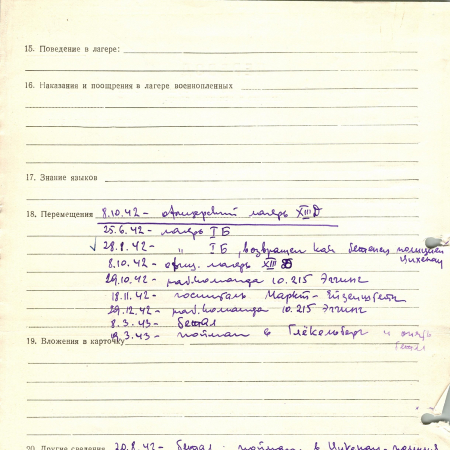 15. Поведение в лагере:
16. Наказания и поощрения в лагере военнопленных
17. Знание языков
18. Перемещения 8.10.42 - офицерский лагерь XIII D
25.6.42 - лагерь I Б
28.8.42 - " I Б, возвращен как беглец полицией
8.10.42 - офиц. лагерь XIII
29.10.42 - раб. команда 10.215 Эггинг
18.11.42 - госпиталь Маркт-
29.12.42 - раб. команда 10.215 Эггинг
8.3.43 - бежал
19.3.43 - пойман в Глёкельберг и опять
бежал
19. Вложения в карточку
20. Другие сведения 20.8.42 - бежал;